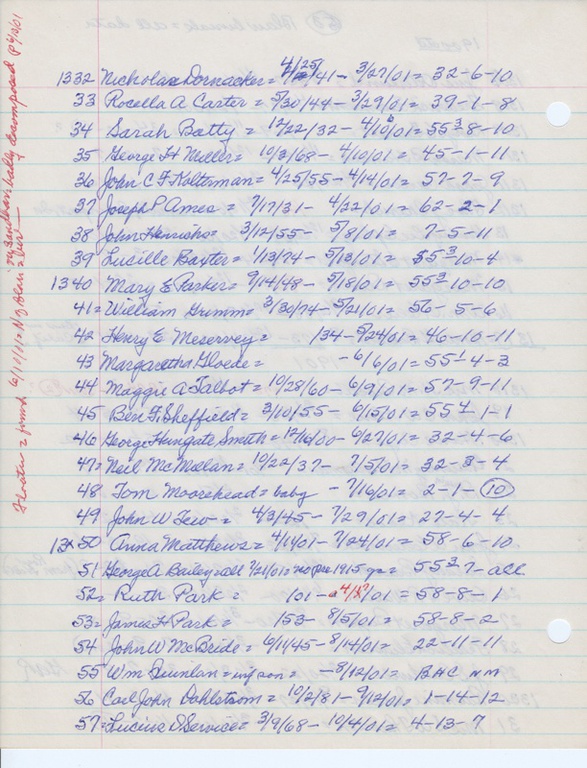 1332 Nicholas Dornacker = 4/25/41 - 3/27/01 = 32-6-10
33 Rosella A Carter = 5/30/44 - 3/29/01 = 39-1-8
34 Sarah Batty = 12/22/32 - 4/10/01 = 55³-8-10
35 George H Moeller = 10/3/68 - 4/10/01 = 45-1-11
36 John C F Kolterman = 4/25/55 - 4/14/01 = 57-7-9
37 Joseph P Ames = 7/17/31 - 4/22/01 = 62-2-1
38 John Henrichs = 3/12/55 - 5/8/01 = 7-5-11
39 Lucille Baxter = 1/13/74 - 5/13/01 = 55³-10-4
1340 Mary E Parker = 9/14/48 - 5/18/01 = 55³-10-10
41 = William Grumm = 3/30/74 - 5/21/01 = 56-5-6
42 Henry E Meservey = /34 - 5/24/01 = 46-10-11
43 Margaretha Gloede = - 6/6/01 = 55¹-4-3
44 Maggie A Talbot = 10/28/60 - 6/9/01 = 57-9-11
45 Ben F. Sheffield = 3/10/55 - 6/15/01 = 55⁴-1-1
46 George Hungate Smith = 12/16/00 - 6/27/01 = 32-4-6
47 = Neil McMillan = 10/22/37 - 7/5/01 = 32-3-4
48 Tom Moorehead = baby - 7/16/01 = 2-1-(10)
49 John W Tew = 4/3/45 - 7/29/01 = 27-4-4
13 50 Anna Matthews = 4/1/01 - 7/24/01 = 58-6-10
51 George A Bailey = all 7/21/01 = no pre 1915 = 55³-7-all
52 = Ruth Park = 101 - /01 = 58-8-1
53 = James H Park = 153 - 8/5/01 = 58-8-2
54 John W McBride = 6/11/45 - 8/14/01 = 22-11-11
55 Wm Quinlan = inf son = - 8/12/01 = BHC NM
56 Carl John Dahlstrom = 10/2/81 - 9/12/01 = 1-14-12
57 = Lucius D Service = 3/9/68 - 10/4/01 = 4-13-7
badly decomposed